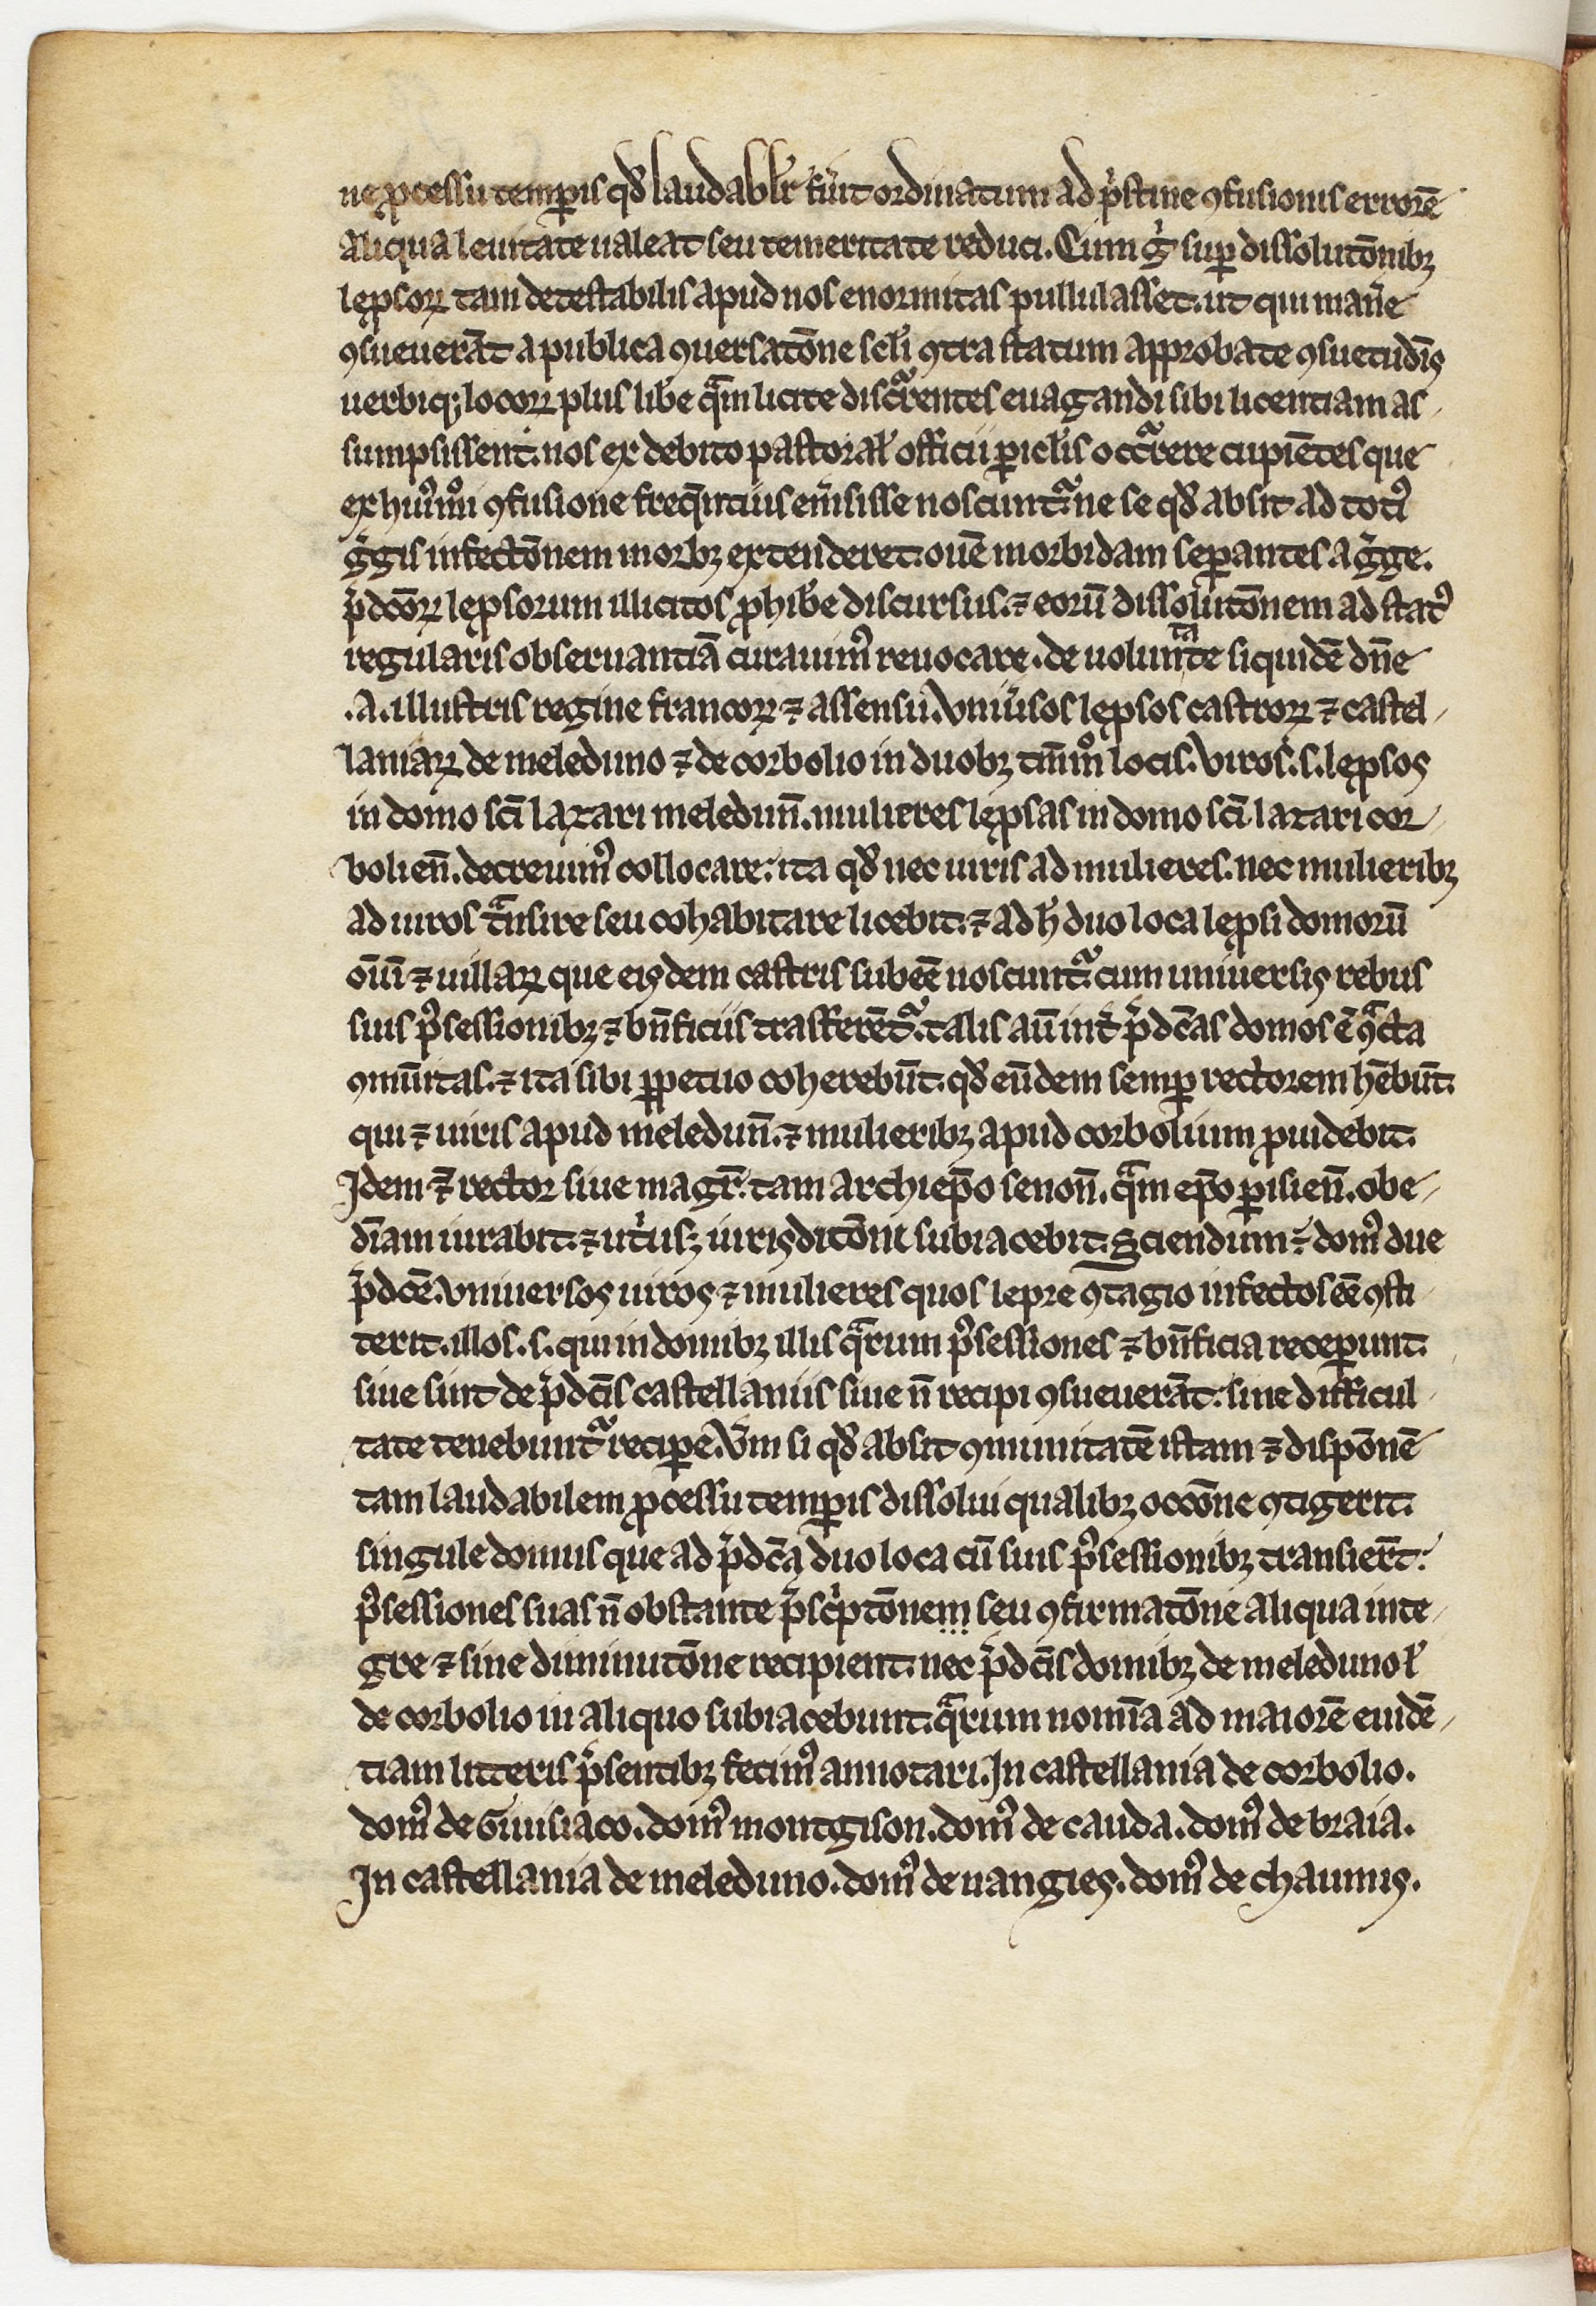 ne ꝓcessu tempis qđ laudabłr fũit ordinatum ad p̃stine ꝯfusionis errorẽ
aliqua leuitate ualeat seu temeritate reduci. Cum g̾ suꝑ dissolutõnibꝫ
lep̱soꝝ tam detestabilis apud nos enormitas pullulasset. ut qui man̾e
ꝯsueuerãt a publica ꝯuersatõne sc̃li ꝯtra statum approbate ꝯsuetudĩs
uerbiqꝫ locoꝝ plus lib̾e q̃m licite discᷓrentes euagandi sibi licentiam as-
sumpsissent. nos ex debito pastoral̾ officii ꝑicl̾is occᷓrere cupiẽtes que
ex hui᷒moͥ ꝯfusione freq̃ntius em̃sisse noscuntᷓ. ne se qđ absit ad toti᷒
g̾gis infectõnem morbꝫ extenderet. ouẽ morbidam seꝑantes a g̾ge.
p̃dc̃oꝝ lep̱sorum illicitos ꝓhib̾e discursus. ⁊ eorũ dissolutõnem ad stat᷒
regularis obseruantiã curauim᷒ reuocare. de uoluntate siquidẽ dñe
.A. illustris regine francoꝝ ⁊ assensu. Vniũsos lep̱sos castroꝝ ⁊ castel-
laniaꝝ de meleduno ⁊ de corbolio in duobꝫ tm̃moͦ locis. Viros .s. lep̱sos
in domo sc̃i lazari meleduñ. mulieres lep̱sas in domo sc̃i lazari cor-
bolieñ. decreuim᷒ collocare: ita qđ nec uiris ad mulieres. nec mulieribꝫ
ad uiros tᷓnsire seu cohabitare licebit. ⁊ ad h̾ duo loca lep̱si domorũ
oĩm ⁊ uillaꝝ que eisdem castris subeẽ noscuntᷓ. cum uniuersis rebus
suis p᷒sessionibꝫ ⁊ bñficiis trasferẽtᷓ. talis aũ int̾ p̃dc̃as domos ẽ ꝯᷓcta
ꝯmũitas. ⁊ ita sibi ꝑpetuo coherebũt. qđ eũdem semꝑ rectorem hẽbũt.
qui ⁊ uiris apud meleduñ. ⁊ mulieribꝫ apud corbolium ꝓuidebit.
Idem ⁊̃ rector siue magr̃. tam archiep̃o senoñ. q̃m ep̃o ꝑisieñ. obe-
dĩam iurabit. ⁊ ut̾usqꝫ iurisditõni subiacebit. Sciendum ⁊̃ dom᷒ due
p̃dc̃e. Vniuersos uiros ⁊ mulieres quos lepre ꝯtagio infectos eẽ ꝯsti-
terit. illos .s. qui in domibꝫ illis q̃rum p᷒sessiones ⁊ bñficia receꝑunt.
siue sint de p̃dc̃is castellaniis siue ñ recipi ꝯsueuerãt. sine difficul-
tate tenebuntᷓ reciꝑe. Vm̃ si qđ absit ꝯmunitatẽ istam ⁊ dispõnẽ
tam laudabilem ꝓcessu tempis dissolui qualibꝫ occõne ꝯtigerit.
singule domus que ad p̃dc̃a duo loca cũ suis p᷒sessionibꝫ transier̃t.
p᷒sessiones suas ñ obstante p̃sc̾ptõnem seu ꝯfirmatõne aliqua inte-
gre ⁊ sine diminutõne recipient. nec p̃dc̃is domibꝫ de meleduno l̾
de corbolio in aliquo subiacebunt. q̃rum nomĩa ad maiorẽ euidẽ-
tiam litteris p̃sentibꝫ fecim᷒ annotari. In castellania de corbolio.
dom᷒ de Guisiaco. dom᷒ montgison. dom᷒ de cauda. dom᷒ de braia.
In castellania de meleduno. dom᷒ de nangies. dom᷒ de chaumis.